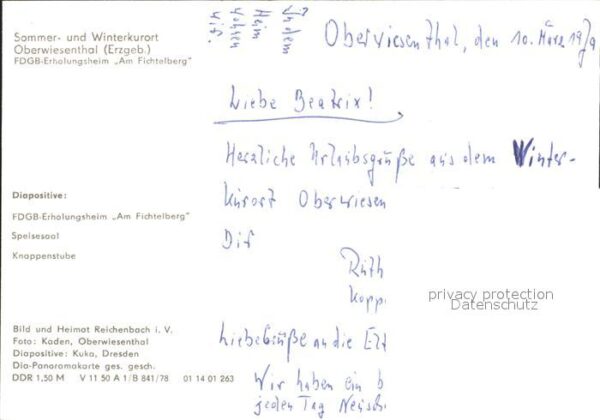 Sommer- und Winterkurort
Oberwiesenthal (Erzgeb.)
FDGB-Erholungsheim „Am Fichtelberg"
Diapositive:
FDGB-Erholungsheim „Am Fichtelberg"
Speisesaal
Knappenstube
Bild und Heimat Reichenbach i. V.
Foto: Kaden, Oberwiesenthal
Diapositive: Kuka, Dresden
Dia-Panoramakarte ges. gesch.
DDR 1,50 M V 11 50 A 1/B 841/78 01 14 01 263
In dem
Heim
wohnen
wir.
Oberwiesenthal, den 10. März 1979
Liebe Beatrix!
Herzliche Urlaubsgrüße aus dem Winter-
kurort Oberwiesen
Dir
Ruth
Kopp.
Liebe Grüße an die Elt
Wir haben ein b
jeden Tag Neusch.
privacy protection
Datenschutz